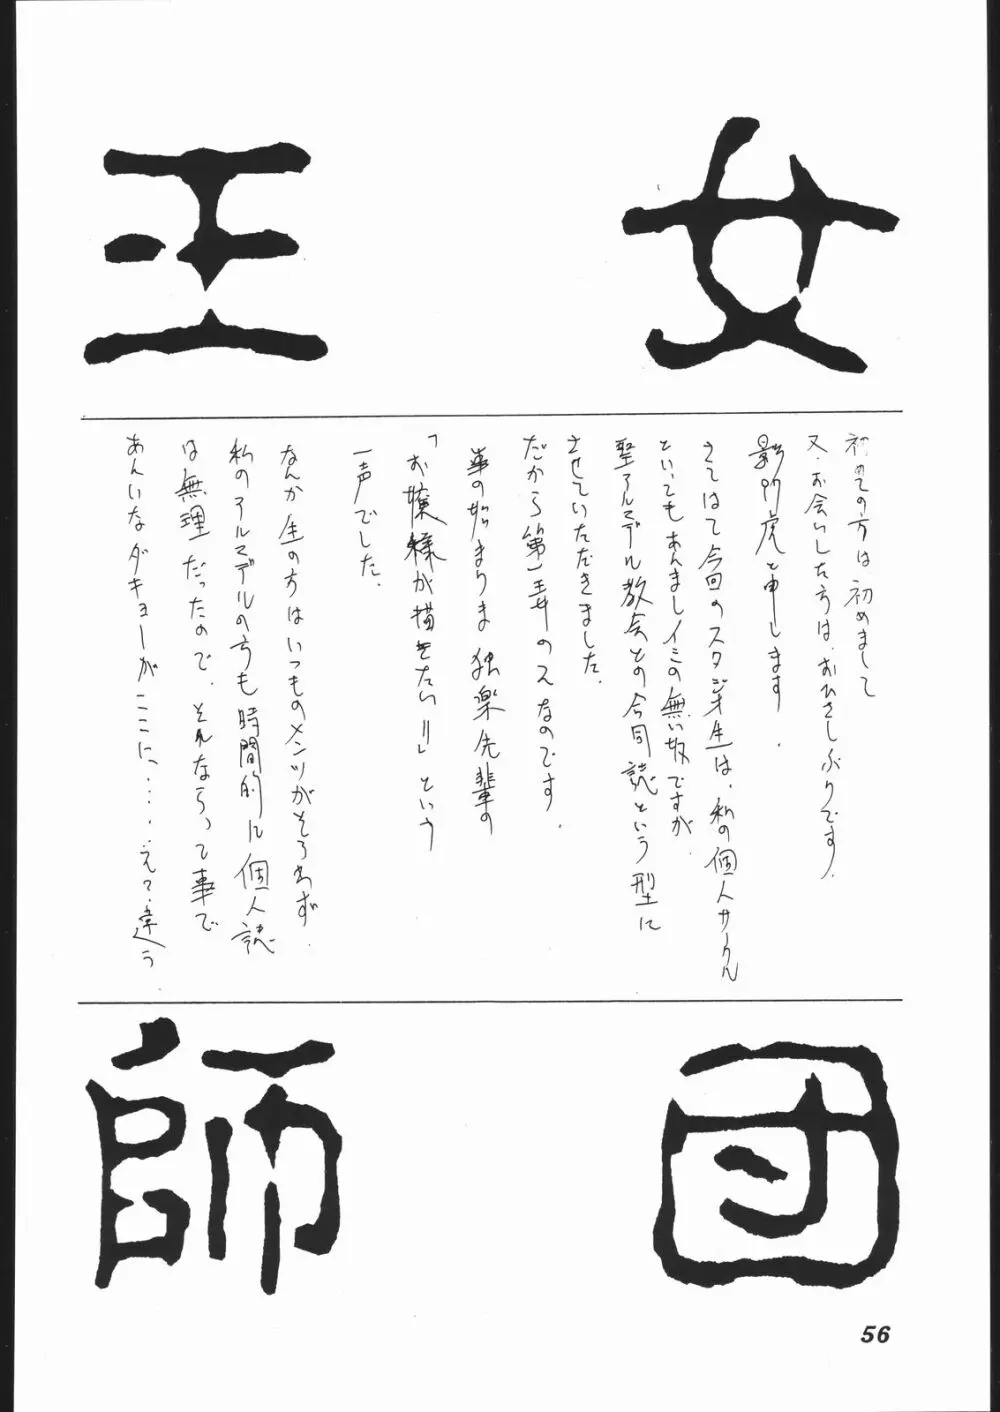 女王
初めての方は初めまして
又、お会いした方は、おひさしぶりです。
影門虎と申します.
さてはて今回のスタジオ生は、私の個人サークル
といってもあんましイミの無い奴ですが
聖アルマデル教会との合同誌という型に
させていただきました.
だから第一弄のえなのです.
事の始まりま独楽先輩の
「お嬢様が描きたい!!」という
一声でした.
なんか生の方はいつものメンツがそろわず.
私のアルマデルの方も時間的に個人誌
は無理だったので、それならって事で
あんいなダキョーがここに・・・・、えっ、違う
師団
56